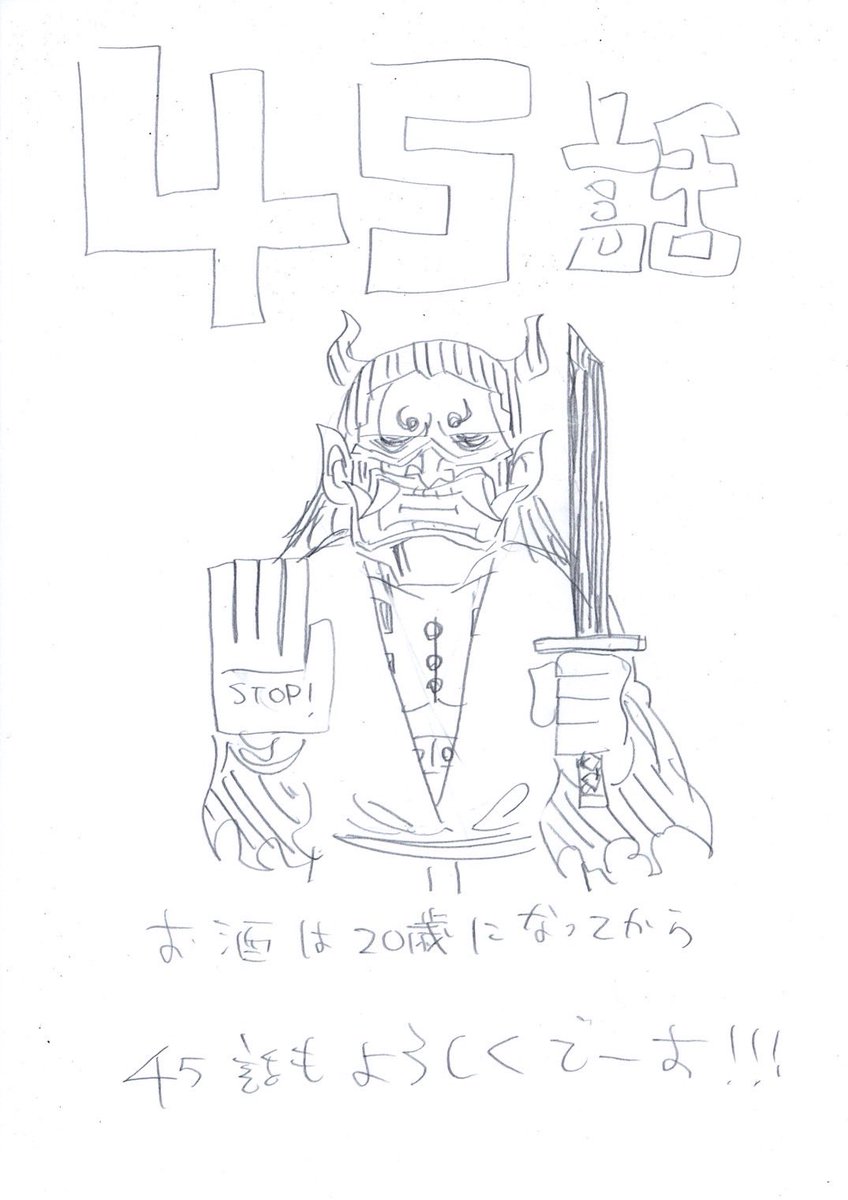 45話
STOP!
お酒は20歳になってから
45話もよろしくでーす!!!